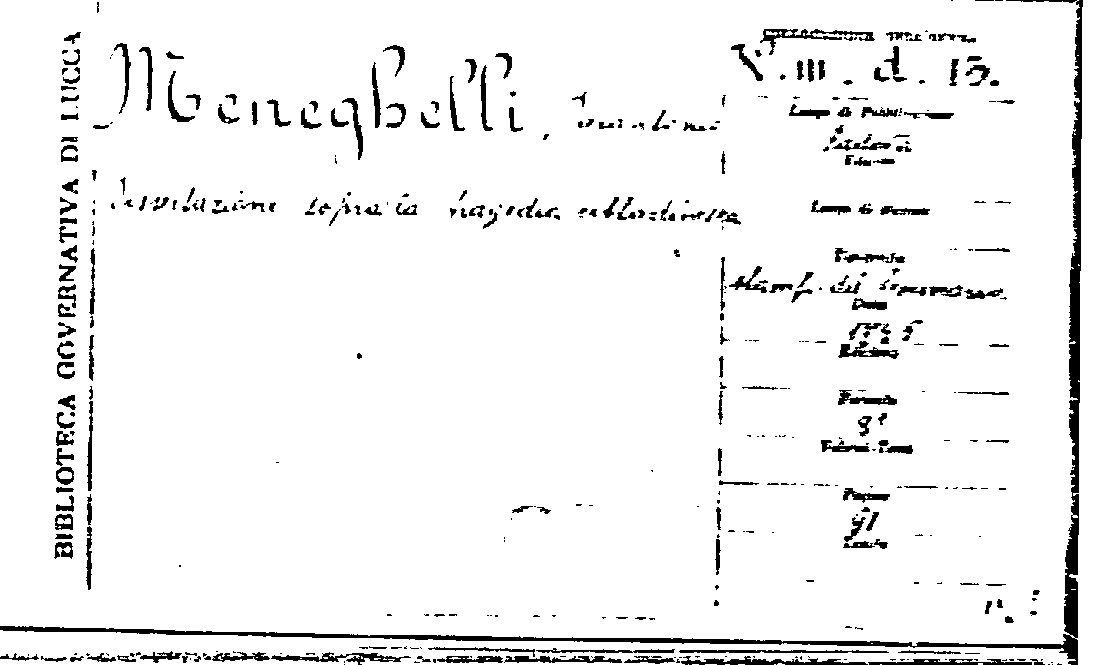 BIBLIOTECA GOVERNATIVA DI LUCCA
Meneghelli,
Dissertazione sopra la tragedia cittadinesca
COLLOCAZIONE DELL'OPERA
V. III. d. 15.
Luogo di Pubblicazione
Padova
Editore
Luogo di Stampa
Tipografia
stamp. del Seminario
Data
Edizione
Formato
8°
Volumi-Tomi
Pagine
91